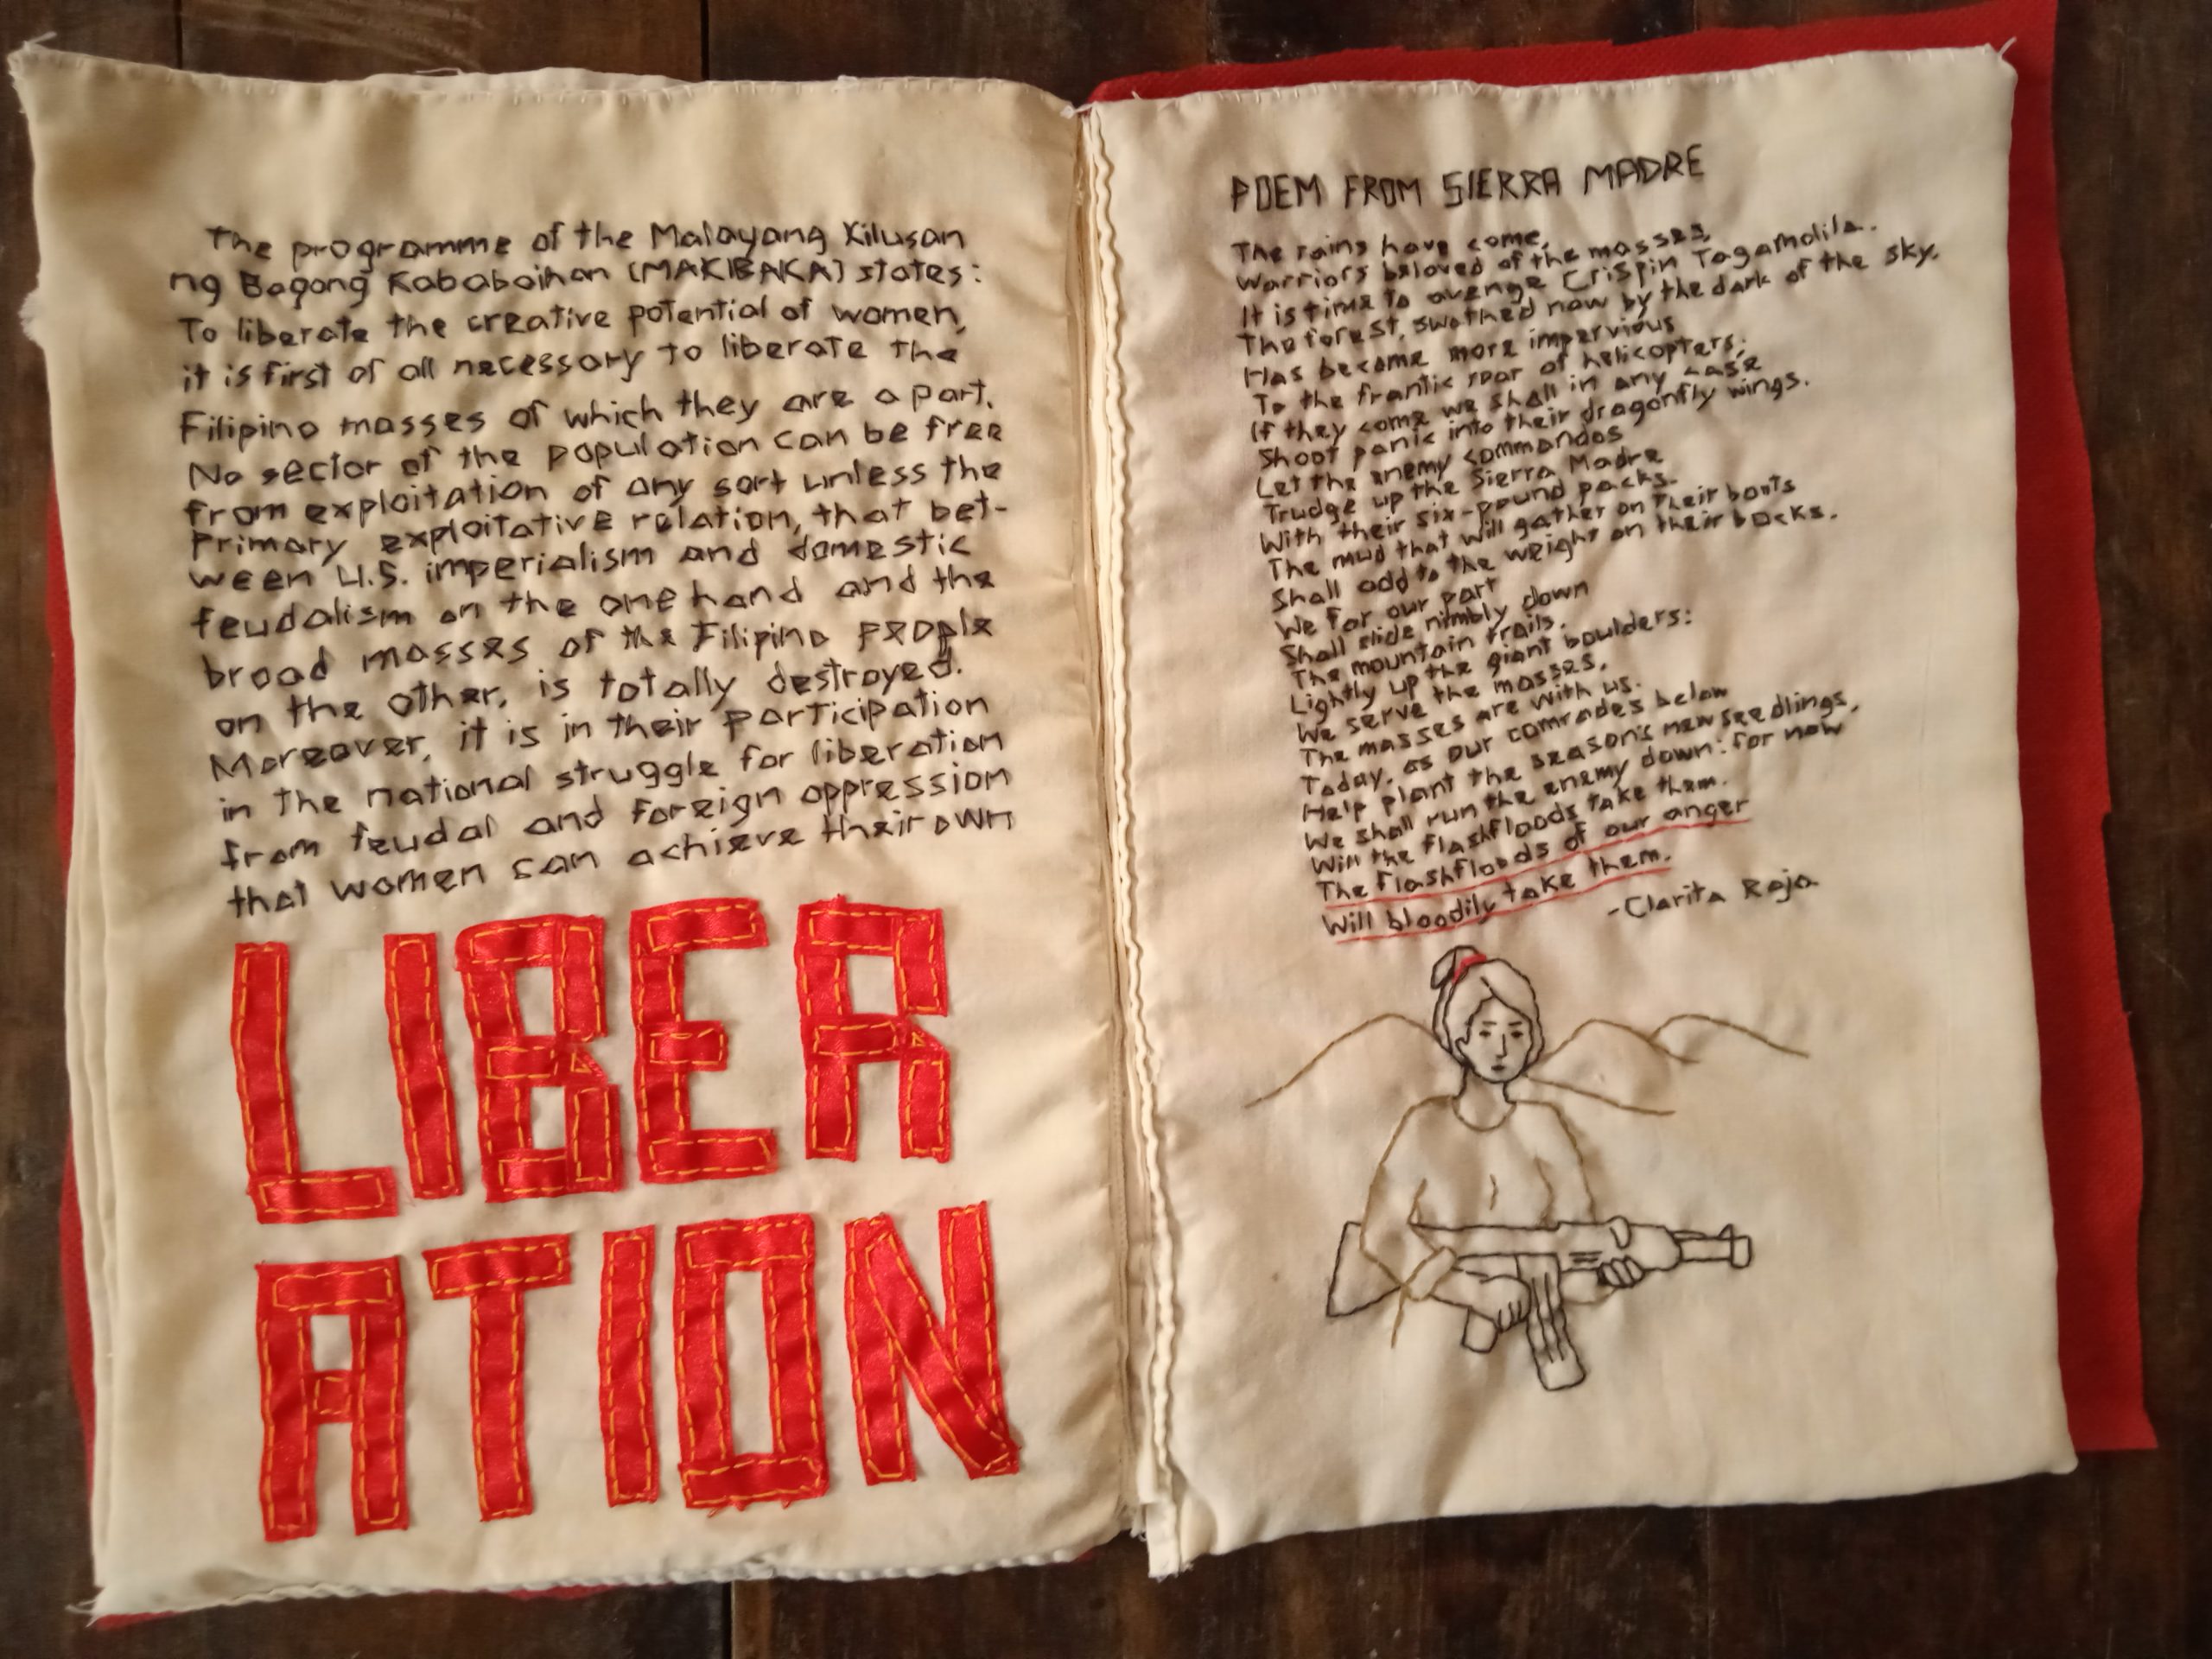 The programme of the Malayang Kilusan
ng Bagong Kababaihan (MAKIBAKA) states:
To liberate the creative potential of women,
it is first of all necessary to liberate the
Filipino masses of which they are a part.
No sector of the population can be free
from exploitation of any sort unless the
primary exploitative relation, that bet-
ween U.S. imperialism and domestic
feudalism on the one hand and the
broad masses of the Filipino people
on the other, is totally destroyed.
Moreover, it is in their participation
in the national struggle for liberation
from feudal and foreign oppression
that women can achieve their own
LIBER
ATION
POEM FROM SIERRA MADRE
The rains have come,
Warriors beloved of the masses,
It is time to avenge Crispin Tagamolila.
The forest, swathed now by the dark of the sky,
Has become more impervious
To the frantic roar of helicopters;
If they come we shall in any case
Shoot panic into their dragonfly wings.
Let the enemy commandos
Trudge up the Sierra Madre
With their six-pound packs.
The mud that will gather on their boots
Shall add to the weight on their backs.
We for our part
Shall slide nimbly down
The mountain trails.
Lightly up the giant boulders:
We serve the masses.
The masses are with us.
Today, as our comrades below
Help plant the season's new seedlings,
We shall run the enemy down: for now
Will the flashfloods take them.
The flashfloods of our anger
Will bloodily take them.
-Clarita Roja